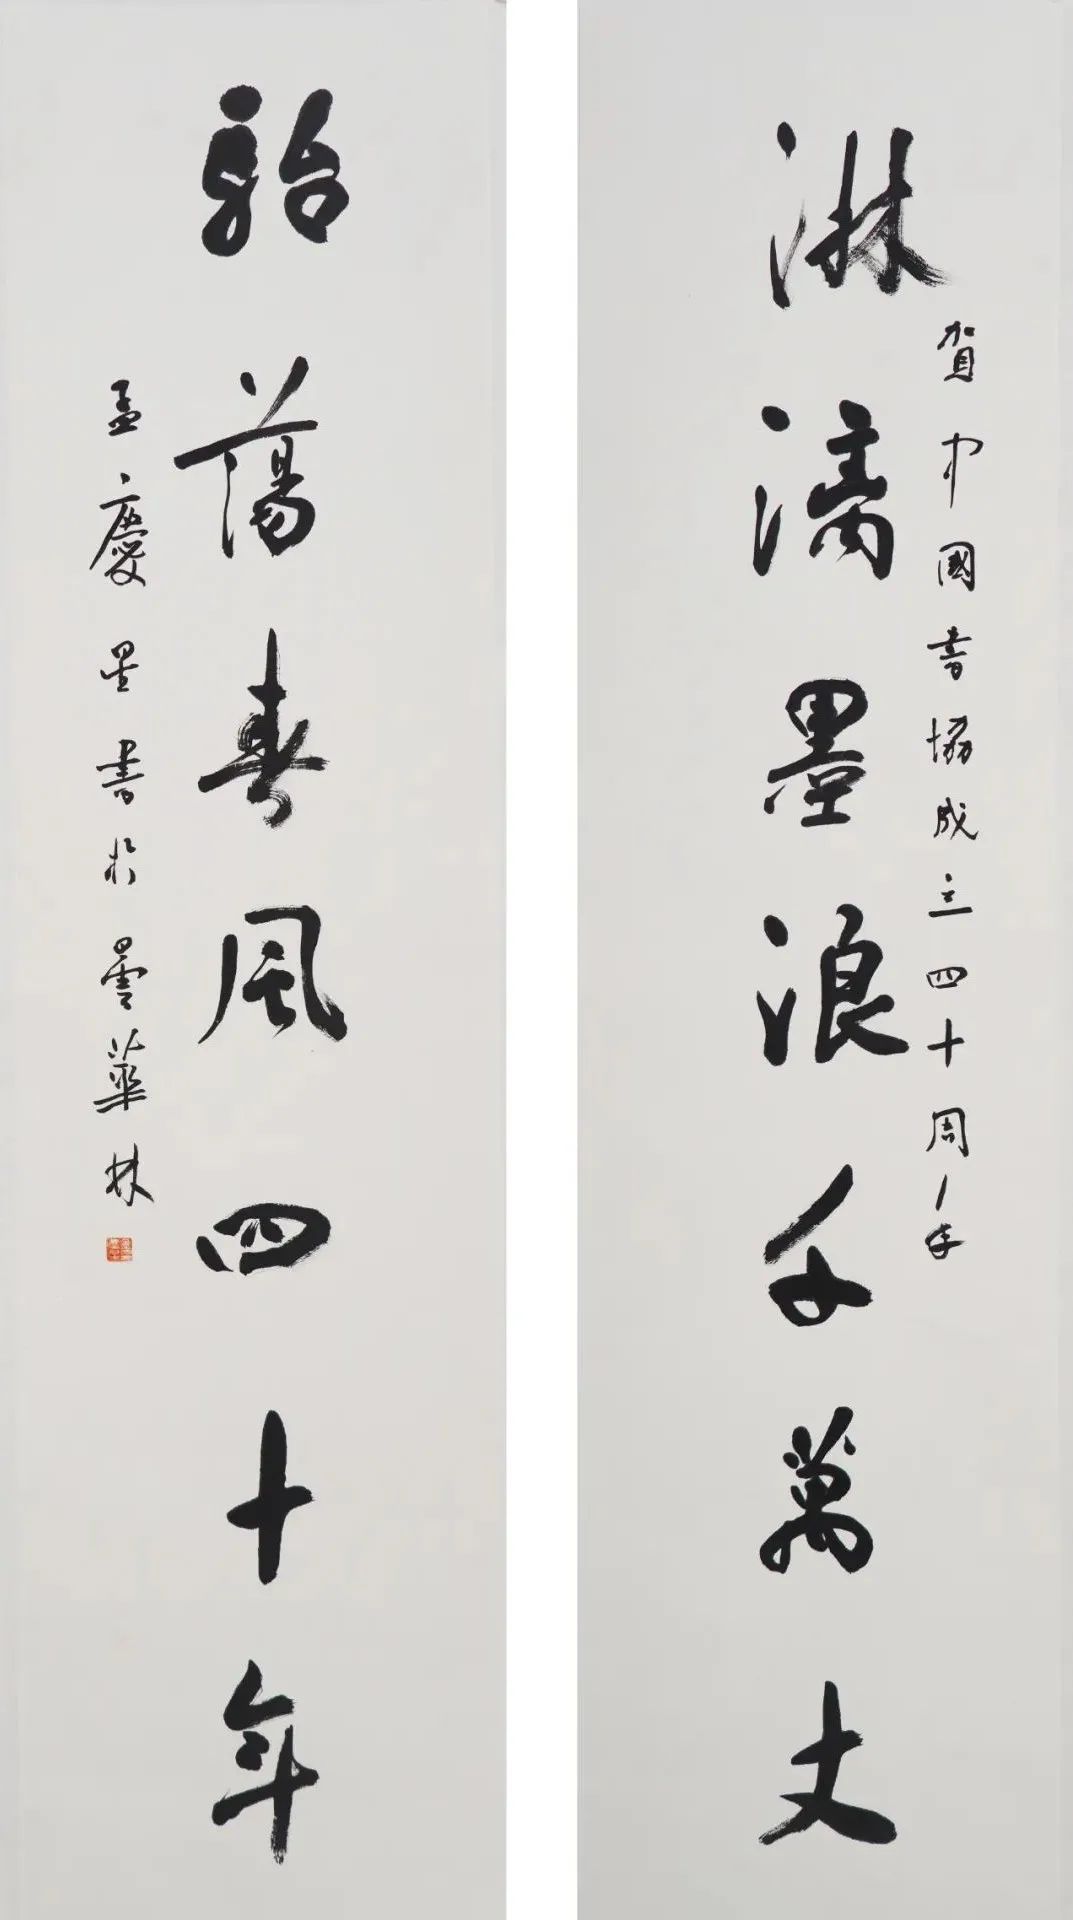 淋漓墨浪千萬丈
賀中國書協成立四十周年
駘蕩春風四十年
孟慶星書於曇華林